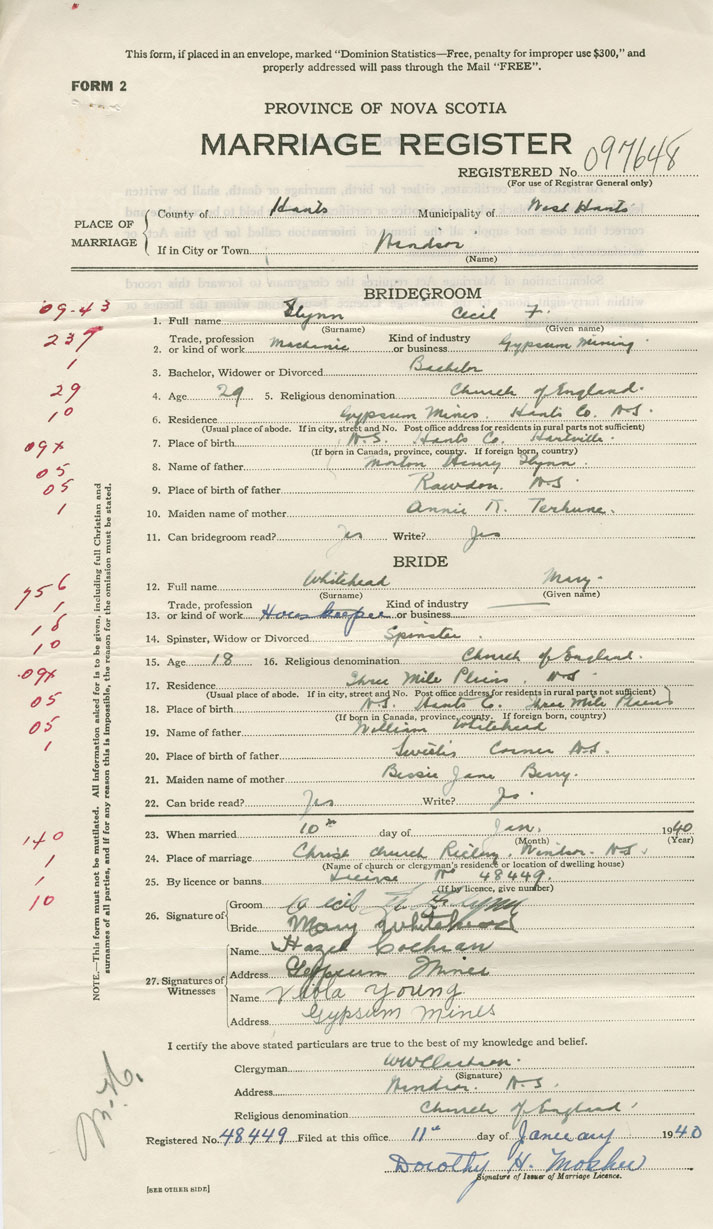 This form, if placed in an envelope, marked "Dominion Statistics—Free, penalty for improper use $300," and
properly addressed will pass through the Mail "FREE".
FORM 2
PROVINCE OF NOVA SCOTIA
MARRIAGE REGISTER
REGISTERED No. 097648
(For use of Registrar General only)
PLACE OF MARRIAGE
County of Hants Municipality of West Hants
If in City or Town Windsor
(Name)
BRIDEGROOM
09-43
1. Full name Flynn Cecil F.
(Surname) (Given name)
237
2. Trade, profession or kind of work Mechanic Kind of industry or business Gypsum Mining
1
3. Bachelor, Widower or Divorced Bachelor
29
4. Age 29 5. Religious denomination Church of England.
10
6. Residence Gypsum Mines. Hants Co. N.S.
(Usual place of abode. If in city, street and No. Post office address for residents in rural parts not sufficient)
09x
7. Place of birth N.S. Hants Co. Hartville.
(If born in Canada, province, county. If foreign born, country)
05
8. Name of father Morton Henry Flynn.
05
9. Place of birth of father Rawdon. N.S.
1
10. Maiden name of mother Annie K. Terhune.
11. Can bridegroom read? Yes Write? Yes
BRIDE
756
12. Full name Whitehead Mary.
(Surname) (Given name)
1
13. Trade, profession or kind of work Kind of industry or business
18
14. Spinster, Widow or Divorced Spinster.
10
15. Age 18 16. Religious denomination Church of England.
09x
17. Residence Three Mile Plains. N.S.
(Usual place of abode. If in city, street and No. Post office address for residents in rural parts not sufficient)
05
18. Place of birth N.S. Hants Co. Three Mile Plains
(If born in Canada, province, county. If foreign born, country)
05
19. Name of father William Whitehead
1
20. Place of birth of father Corner N.S.
21. Maiden name of mother Bessie Jane Berry.
22. Can bride read? Yes Write? Yes.
140
23. When married 10th day of Jan. 1940
(Month) (Year)
1
24. Place of marriage Christ Church Windsor. N.S.
(Name of church or clergyman's residence or location of dwelling house)
1
25. By licence or banns License No 48449.
(If by licence, give number)
10
26. Signature of
Groom Cecil F. Flynn
Bride Mary Whitehead
27. Signatures of Witnesses
Name Hazel Cochran
Address Gypsum Mines
Name Young
Address Gypsum Mines
NOTE.—This form must not be mutilated. All information asked for is to be given, including full Christian and
surnames of all parties, and if for any reason this is impossible, the reason for the omission must be stated.
I certify the above stated particulars are true to the best of my knowledge and belief.
Clergyman
(Signature)
Address Windsor. N.S.
Religious denomination Church of England.
Registered No. 48449 Filed at this office 11th day of January 1940
Dorothy H. Mosher
Signature of Issuer of Marriage Licence.
[SEE OTHER SIDE]